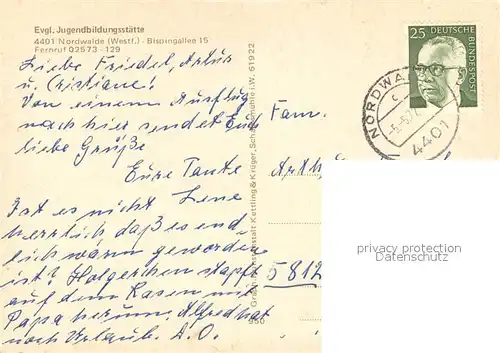 Evgl. Jugendbildungsstätte
4401 Nordwalde (Westf.) - Bispingallee 15
Fernruf 02573 - 129
Liebe Friedel, Artur
u. Cristiane!
Von einem Ausflug
nach hier sendet Euch
liebe Grüße
Eure Tante
Lene
Ist es nicht
herrlich daß es end-
lich warm geworden
ist? Holgerchen stapft
auf dem Rasen mit
Papa herum, Alfred hat
noch Urlaub. D. O.
Kettling & Krüger, Schalksmühle i. W. 61922
950
25 DEUTSCHE BUNDESPOST
NORDWA
4401
Fam.
5812
privacy protection
Datenschutz